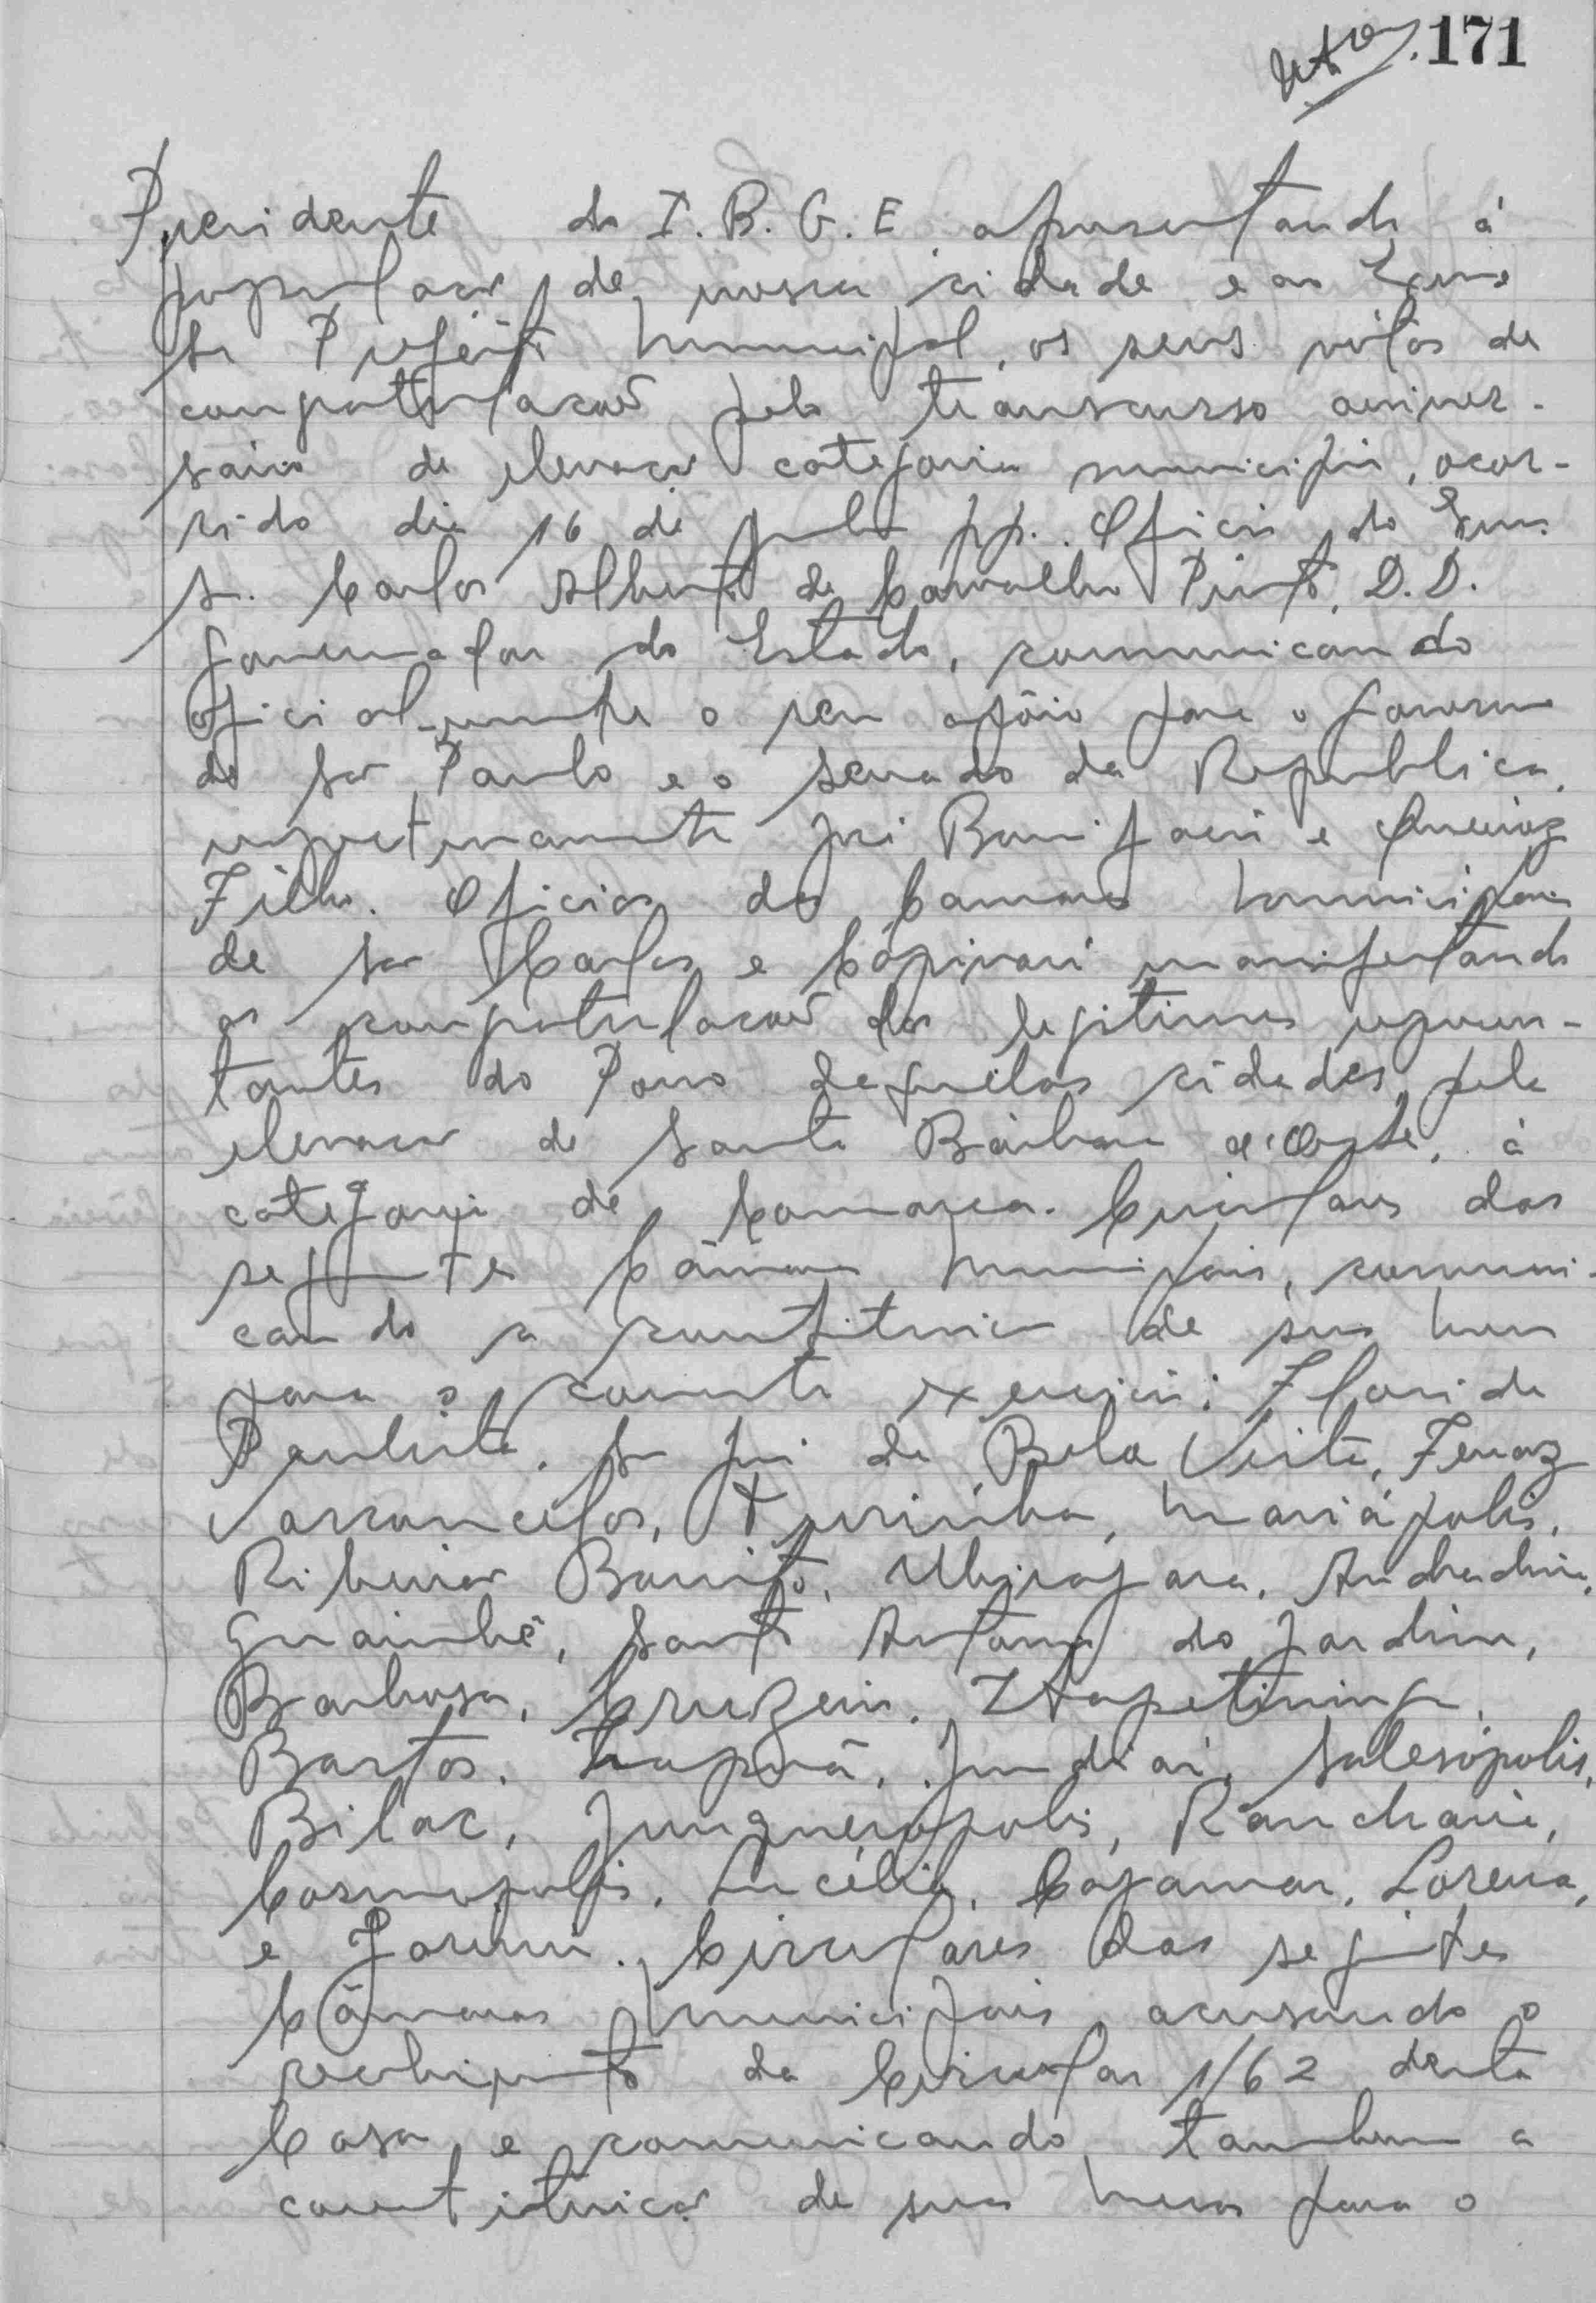 171
Presidente do I.B.G.E. apresentando à
população de nossa cidade e ao Exmo
Sr Prefeito Municipal, os seus votos de
congratulações pelo transcurso aniver-
sário de elevação categoria município, ocor-
rido dia 16 de junho pp. Oficio do Exmo.
Sr. Carlos Alberto de Carvalho Pinto, D.D.
Governador do Estado, comunicando
oficialmente o seu apôio para o governo
de São Paulo e o Senado da Republica,
respectivamente José Bonifacio e Queiroz
Filho. Oficios das Camaras Municipais
de São Carlos e Capivari manifestando
as congratulações dos legitimos represen-
tantes do Povo daquelas cidades, pela
elevação de Santa Bárbara d'Oeste, à
categoria de Comarca. Circulares das
seguintes Câmaras Municipais, comuni-
cando a constituição de sua mesa
para o corrente exercicio: Florida
Paulista, São José da Bela Vista, Ferraz
Vasconcelos, Mariápolis,
Ribeirão Bonito, Ubirajara, Andradina,
Guaimbê, Santo Antonio do Jardim,
Barbosa, Cruzeiro, Itapetininga,
Bastos, Jundiaí, Salesópolis,
Bilac, Junqueirópolis, Rancharia,
Cosmopolis, Lucélia, Cajamar, Lorena,
e . Circulares das seguintes
Câmaras Municipais acusando o
recebimento da Circular 1/62 desta
Casa, e comunicando, tambem a
constituição de suas mesas para o